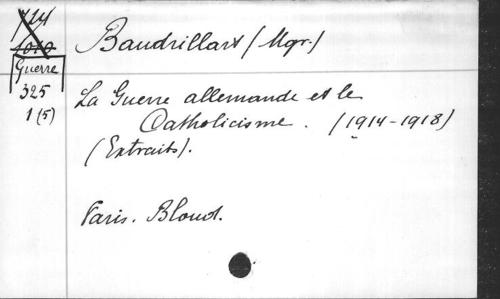 724
1010
Guerre
325
1 (5)
Baudrillart (Mgr.)
La Guerre allemande et le
Catholicisme. (1914-1918)
(Extraits).
Paris. Bloud.